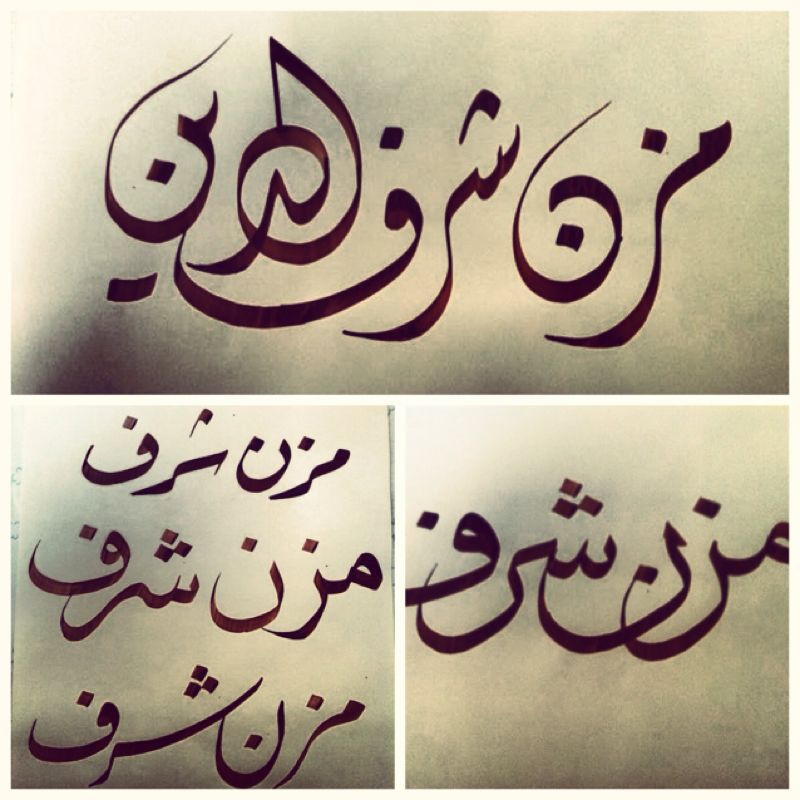 مزن شرف الدين
مزن شرف
مزن شرف
مزن شرف
مزن شرف